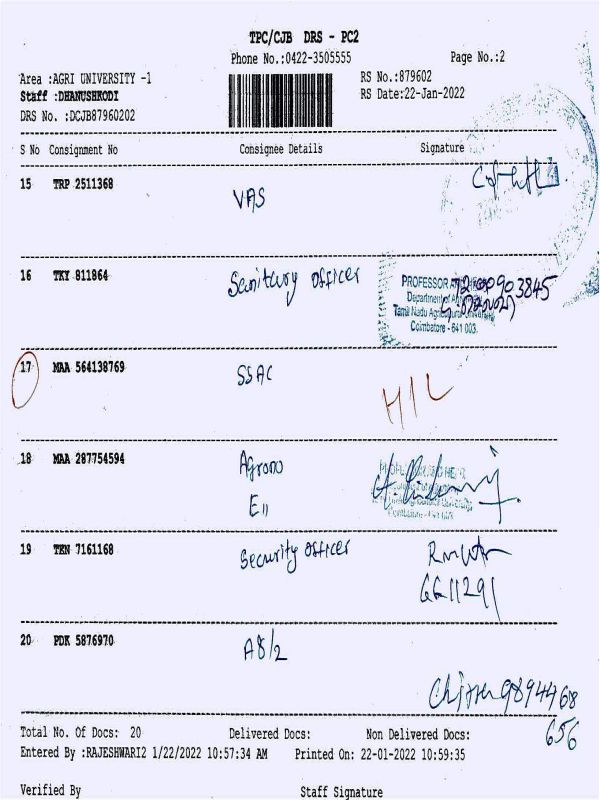 TPC/CJB DRS - PC2
Phone No.:0422-3505555 Page No.:2
Area :AGRI UNIVERSITY -1 RS No.:879602
Staff :DHANUSHKODI RS Date:22-Jan-2022
DRS No. :DCJB87960202
S No Consignment No Consignee Details Signature
15 TRP 2511368
VAS
16 TKY 811864 Sanitary officer
PROFESSOR
Department of
Tamil Nadu Agricultural University
Coimbatore - 641 003.
17 MAA 564138769 SSAC
HIL
18 MAA 287754594 Agrono
E11
19 TEN 7161168 Security officer
GG11291
20 PDK 5876970 A8/2
9894468
656
Total No. Of Docs: 20 Delivered Docs: Non Delivered Docs:
Entered By :RAJESHWARI2 1/22/2022 10:57:34 AM Printed On: 22-01-2022 10:59:35
Verified By Staff Signature